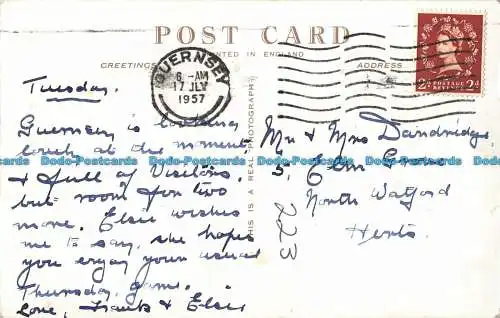 POST CARD
GREETINGS
PRINTED IN ENGLAND
ADDRESS
GUERNSEY
6 - AM
17 JLY
1957
2D POSTAGE REVENUE 2D
THIS IS A REAL PHOTOGRAPH
Tuesday.
Guernsey is looking
lovely at the moment
& full of Visitors,
but room for two
more. Elsie wishes
me to say, she hopes
you enjoy your usual
Thursday game.
Love, Franks & Elsie
Mr & Mrs Dandridge
5, Elm
North Watford
Herts.
223
Dodo-Postcards Dodo-Postcards Dodo-Postcards Dodo-Postcards Dodo-Postcards Dodo-Postcards